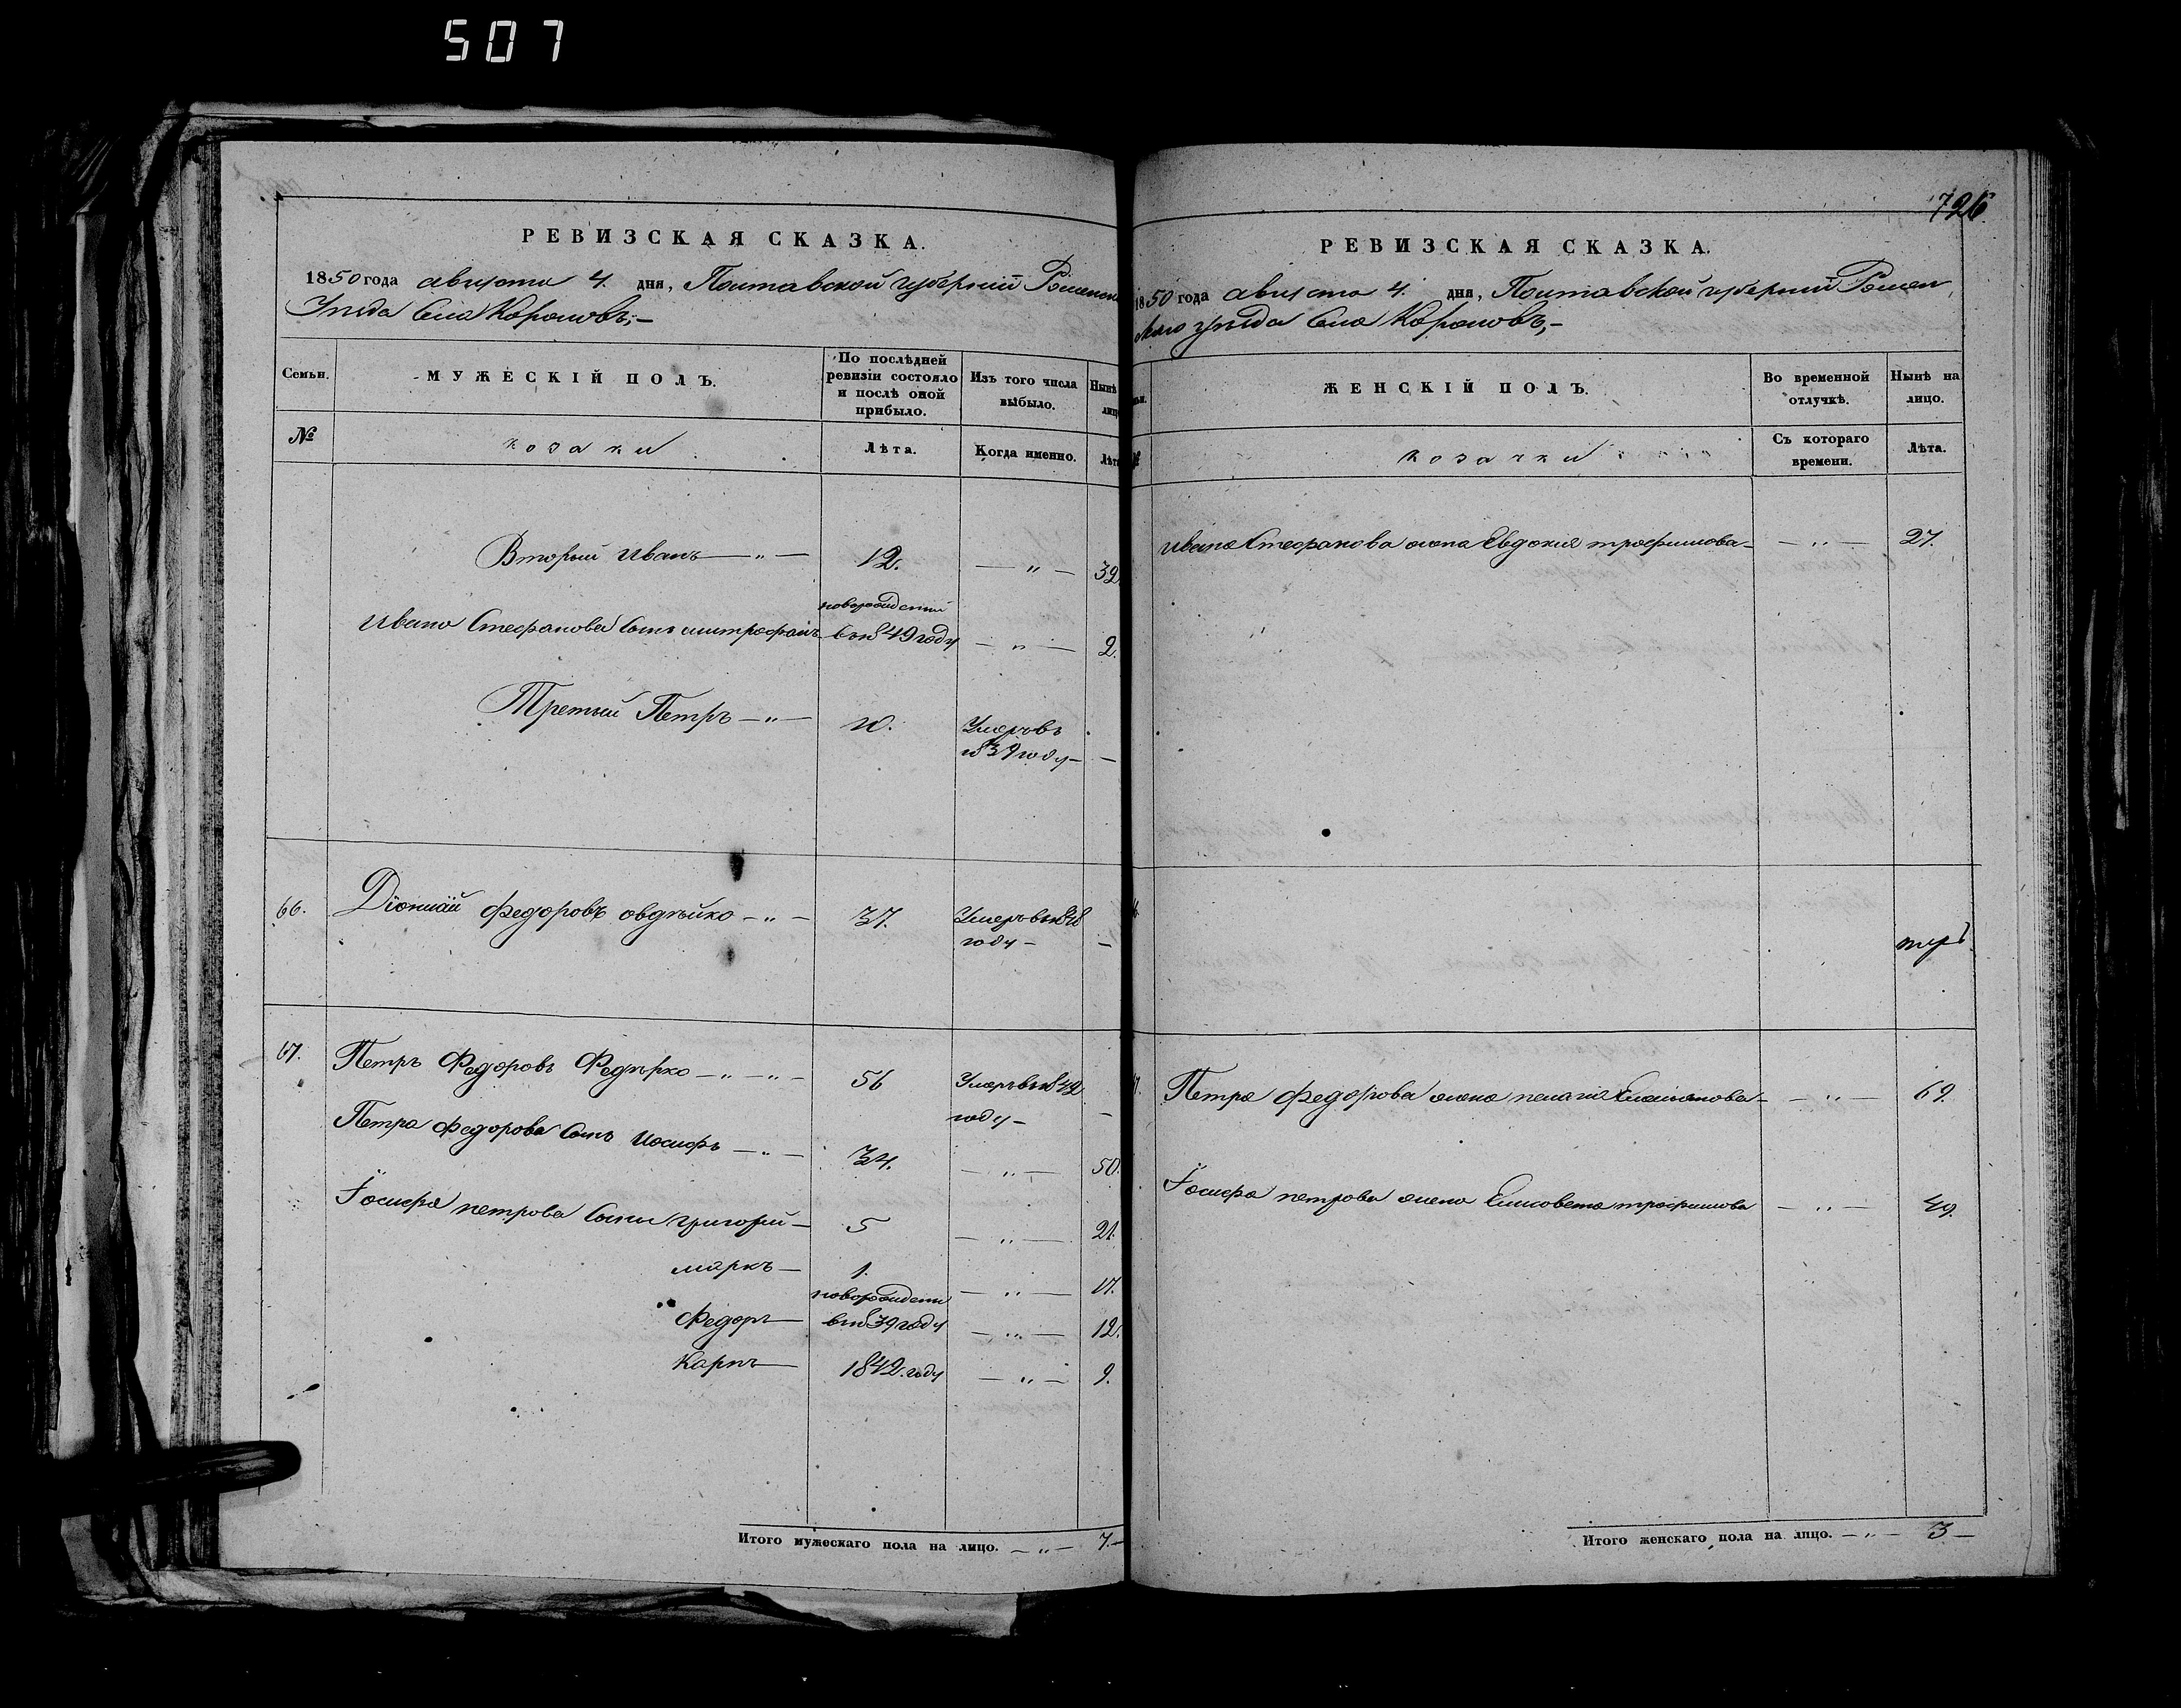 507
РЕВИЗСКАЯ СКАЗКА.
1850 года августа 4. дня, Полтавской губернии Роменск
Уѣзда Села Корововъ;—
Семьи.
МУЖЕСКІЙ ПОЛЪ.
По послѣдней ревизіи состояло и послѣ оной прибыло.
Изъ того числа выбыло.
Нынѣ лицо
№
козаки
Лѣта.
Когда именно.
Лѣта
Вторый Иванъ — " — 12. — " — 32
новорожденный
Ивана Стефанова сынъ митрофанъ в 1849 году — " — 2.
Третий Петръ — " — 10. Умеръ въ
1839 году — —
66. Діонисій Федоровъ овдѣйко — " — 37. Умеръ в 18
году — —
67. Петръ Федоровъ Федирко — " — " — 56 Умеръ в 1842
году — —
Петра Федорова сынъ Иосифъ — " — 34. — " — 50.
Іосифа петрова сыны григорій — 5 — " — 21.
маркъ — 1. — " — 17.
новорожденн
Федоръ — в 1839 году — " — 12.
Карпъ — 1842. году — " — 9.
Итого мужескаго пола на лицо. — " — 7. —
726
РЕВИЗСКАЯ СКАЗКА.
1850 года августа 4. дня, Полтавской губерний Ромен
скаго уѣзда Села
ЖЕНСКІЙ ПОЛЪ.
Во временной отлучкѣ.
Нынѣ на лицо.
козачки
Съ котораго времени.
Лѣта.
Ивана Стефанова жена Евдокия трофимова — — " — 27.
Петра федорова жена пелагия Емельянова — — " — 69.
Іосифа петрова жена Елисовета трофимова — " — 49.
Итого женскаго пола на лицо. — " — 3 —